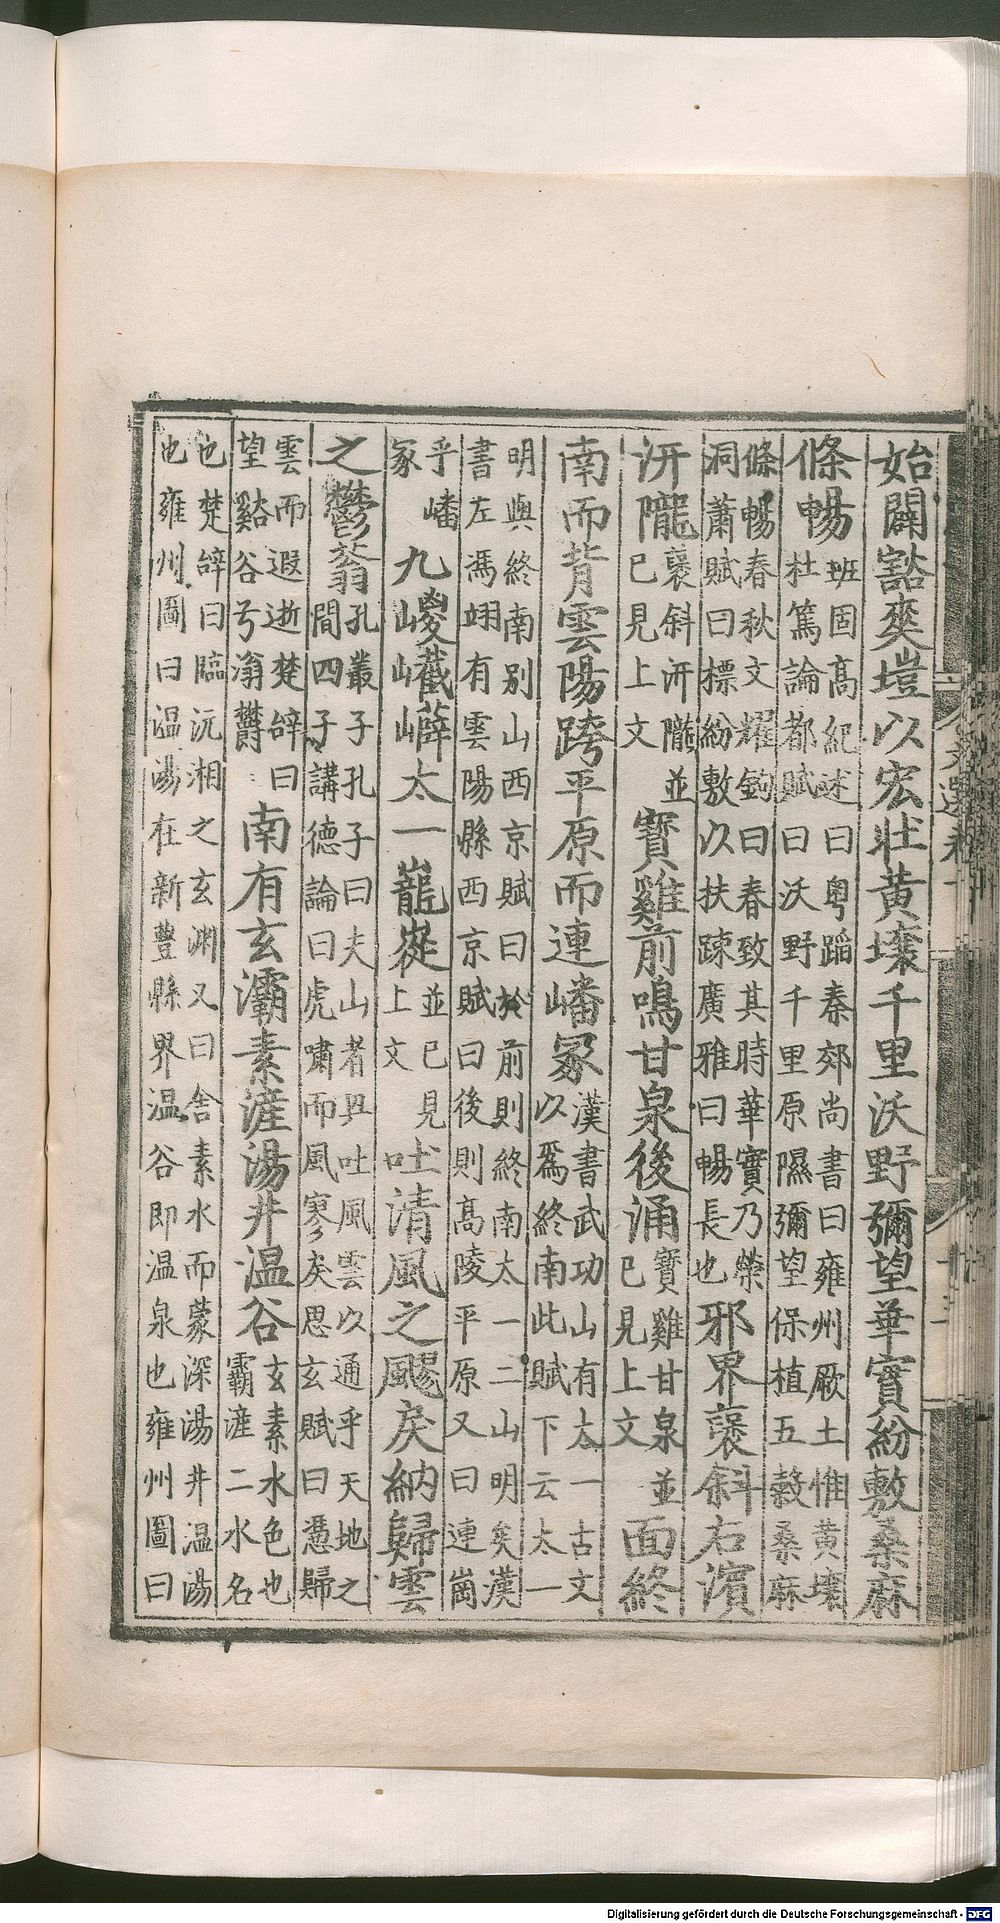 始闢豁爽塏以宏壯黃壤千里沃野彌望華實紛敷桑麻
條暢班固高紀述曰粵蹈秦郊尚書曰雍州厥土惟黃壤杜篤論都賦曰沃野千里原隰彌望保植五穀桑麻
條暢春秋文耀鉤曰春致其時華實乃榮洞蕭賦曰標紛敷以扶踈廣雅曰暢長也邪界褒斜右濱
汧隴褒斜汧隴並已見上文寶雞前鳴甘泉後涌寶雞甘泉並已見上文面終
南而背雲陽跨平原而連嶓冢漢書武功山有太一古文以爲終南此賦下云太一
明與終南別山西京賦曰於前則終南太一二山明矣漢書左馮翊有雲陽縣西京賦曰後則高陵平原又曰連崗
乎嶓冢九嵕巀嶭太一巃嵸並已見上文吐清風之飂戾納歸雲
之鬱蓊孔叢子孔子曰夫山者興吐風雲以通乎天地之間四子講德論曰虎嘯而風寥戾思玄賦曰憑歸
雲而遐逝楚辭曰望谿谷兮滃鬱南有玄灞素滻湯井温谷玄素水色也霸滻二水名
也楚辭曰臨沅湘之玄淵又曰舍素水而蒙深湯井温湯也雍州圖曰温湯在新豐縣界温谷即温泉也雍州圖曰
Digitalisierung gefördert durch die Deutsche Forschungsgemeinschaft - DFG